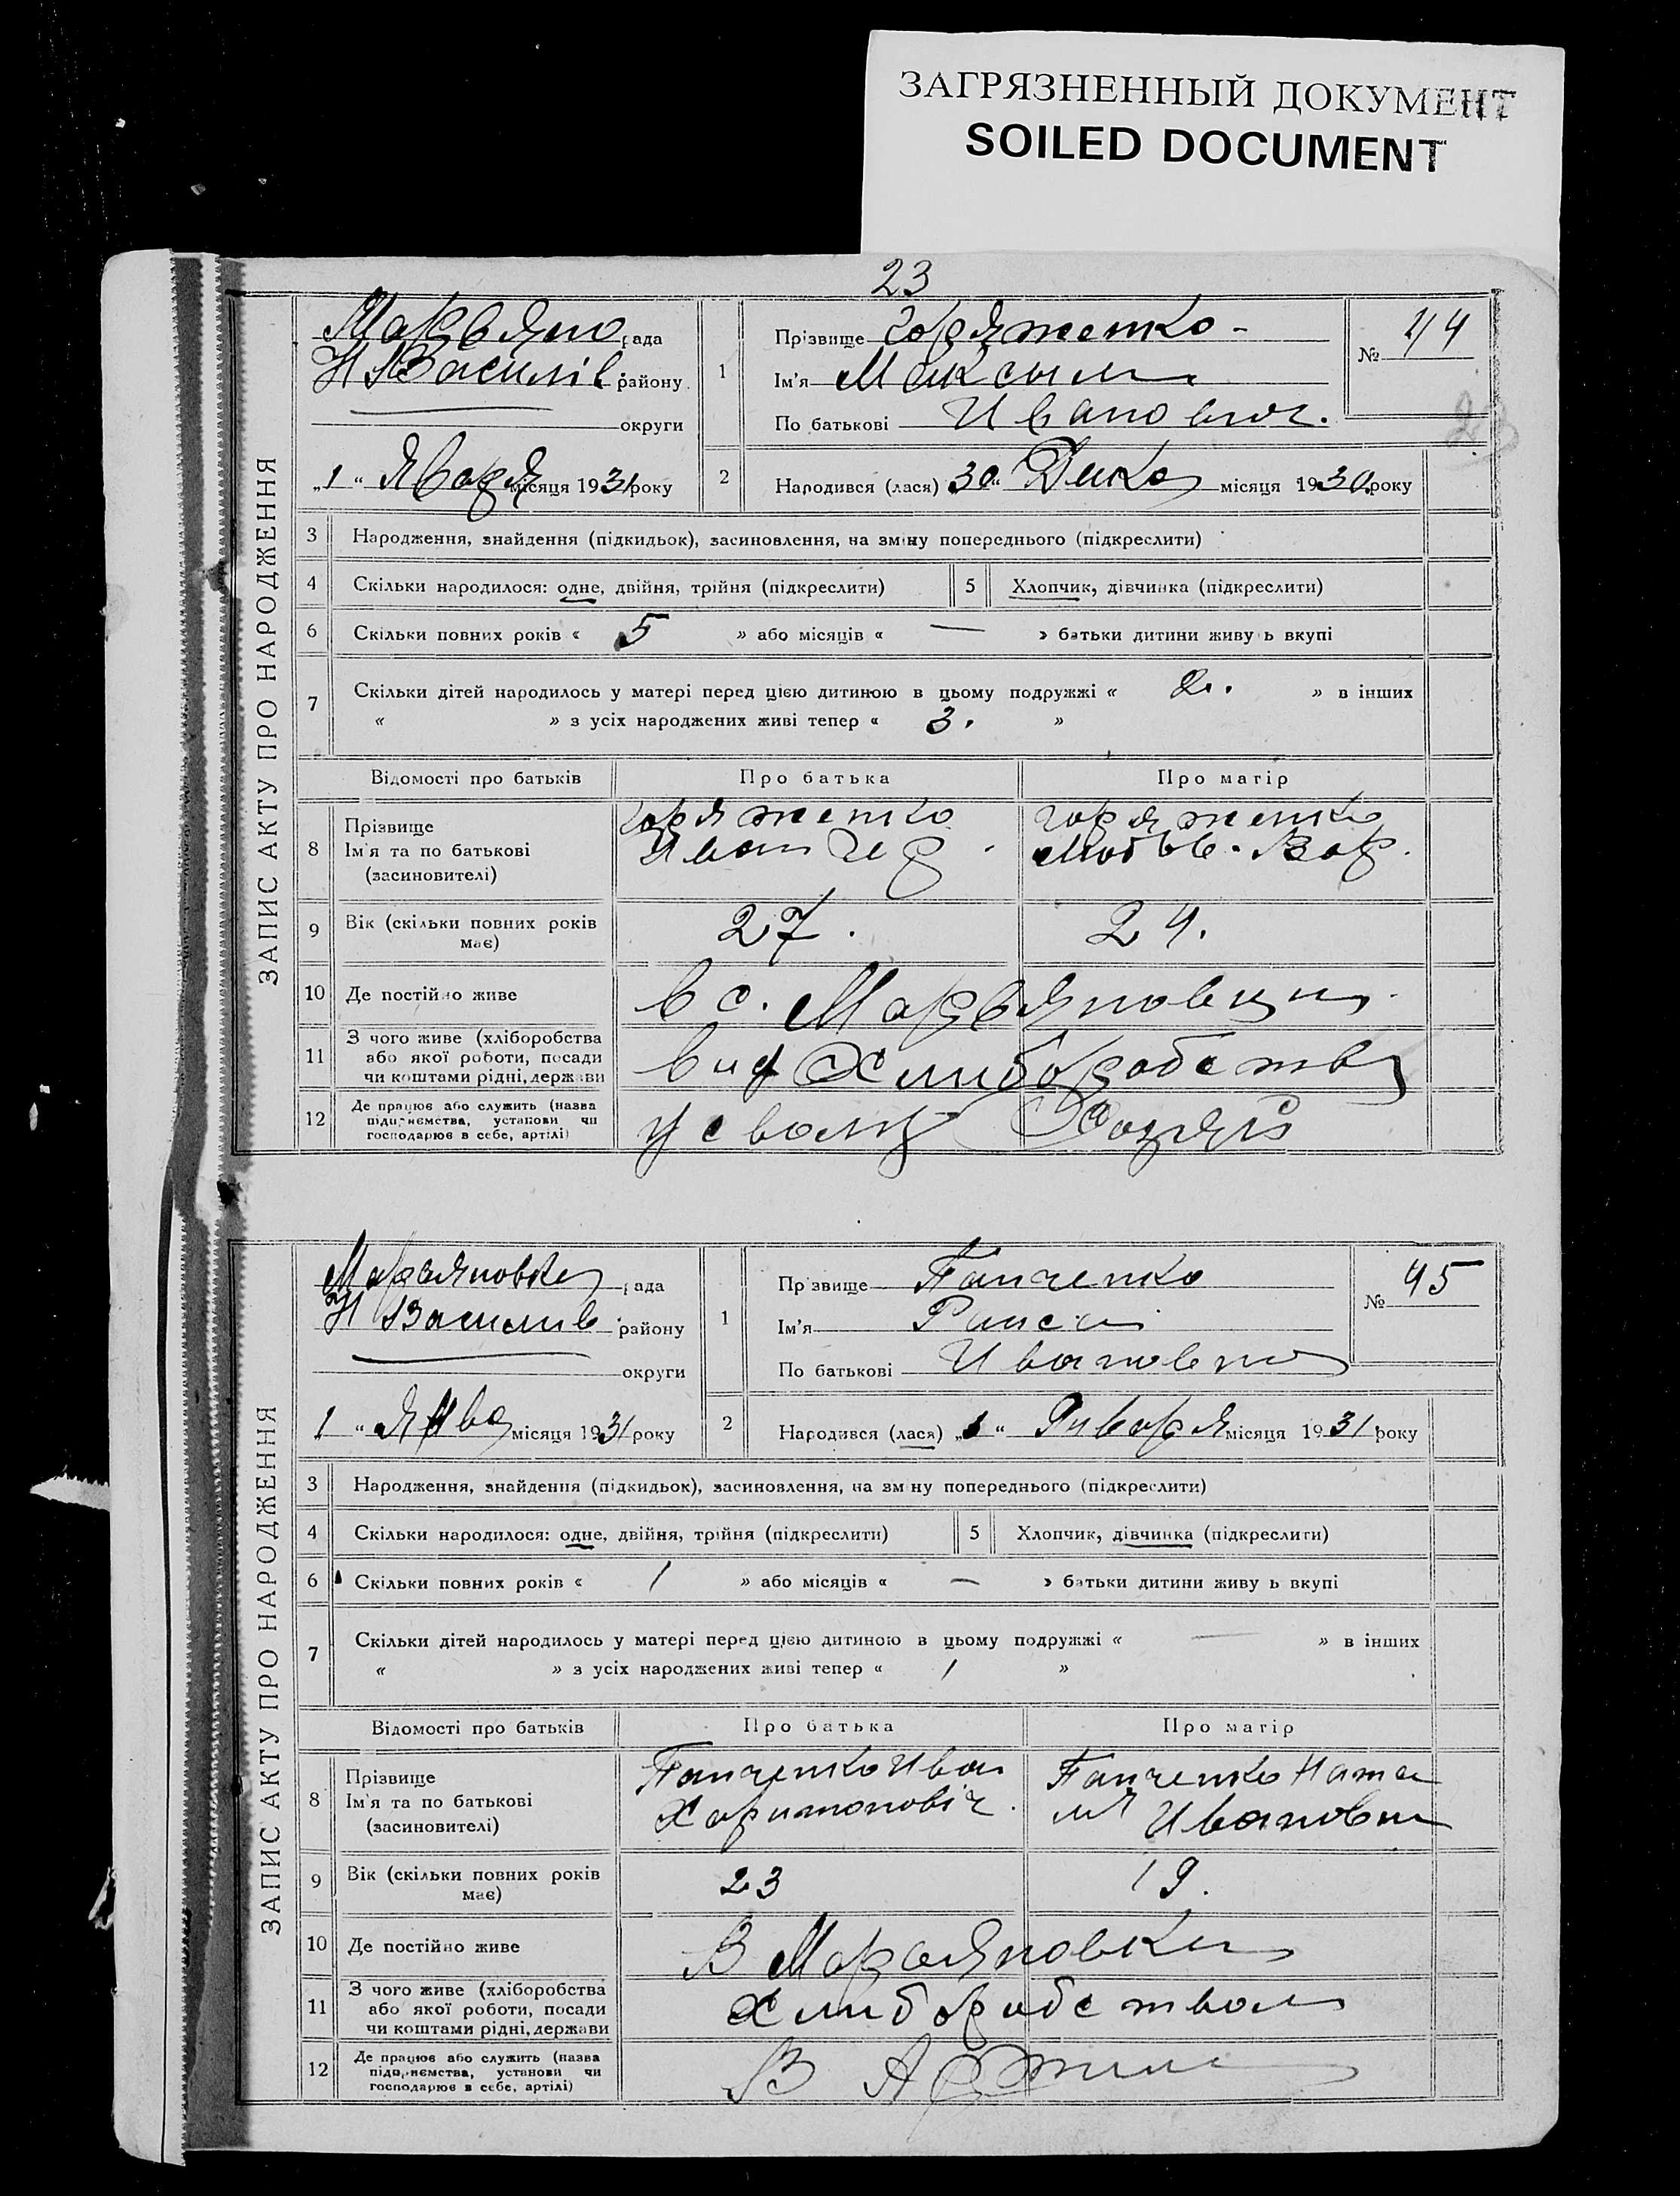 ЗАГРЯЗНЕННЫЙ ДОКУМЕНТ
SOILED DOCUMENT
23
ЗАПИС АКТУ ПРО НАРОДЖЕННЯ
Марьяно рада
Н Василів. району
округи
„1“ Января місяця 1931 року
1
Прізвище Горяженко -
Ім'я Максым
По батькові Иванович.
№ 44
23
2
Народився (лася) 30“ Дека місяця 1930. року
3 Народження, знайдення (підкидьок), засиновлення, на зміну попереднього (підкреслити)
4 Скільки народилося: одне, двійня, трійня (підкреслити) 5 Хлопчик, дівчинка (підкреслити)
6 Скільки повних років « 5 » або місяців « — » батьки дитини живуть вкупі
7 Скільки дітей народилось у матері перед цією дитиною в цьому подружжі « 2. » в інших
« » з усіх народжених живі тепер « 3. »
Відомості про батьків Про батька Про матір
8 Прізвище
Ім'я та по батькові
(засиновителі)
Горяженко
Иван
Горяженко
Любовь.
9 Вік (скільки повних років
має)
27. 24.
10 Де постійно живе в с. Марьяновци
11 З чого живе (хліборобства
або якої роботи, посади
чи коштами рідні, держави
вид Хлиборобства
12 Де працює або служить (назва
підприємства, установи чи
господарює в себе, артілі)
у своему
ЗАПИС АКТУ ПРО НАРОДЖЕННЯ
Марьяновка рада
Н Василив. району
округи
„1“ Янва місяця 1931 року
1
Прізвище Панченко
Ім'я Раиса
По батькові Ивановна
№ 45
2
Народився (лася) „1“ Января місяця 1931 року
3 Народження, знайдення (підкидьок), засиновлення, на зміну попереднього (підкреслити)
4 Скільки народилося: одне, двійня, трійня (підкреслити) 5 Хлопчик, дівчинка (підкреслити)
6 Скільки повних років « 1 » або місяців « — » батьки дитини живуть вкупі
7 Скільки дітей народилось у матері перед цією дитиною в цьому подружжі « — » в інших
« » з усіх народжених живі тепер « 1 »
Відомості про батьків Про батька Про матір
8 Прізвище
Ім'я та по батькові
(засиновителі)
Панченко Иван
Харитоновіч.
Панченко Ната
лія Ивановна
9 Вік (скільки повних років
має)
23 19.
10 Де постійно живе В Марьяновки
11 З чого живе (хліборобства
або якої роботи, посади
чи коштами рідні, держави
Хлиборобством
12 Де працює або служить (назва
підприємства, установи чи
господарює в себе, артілі)
В Артили